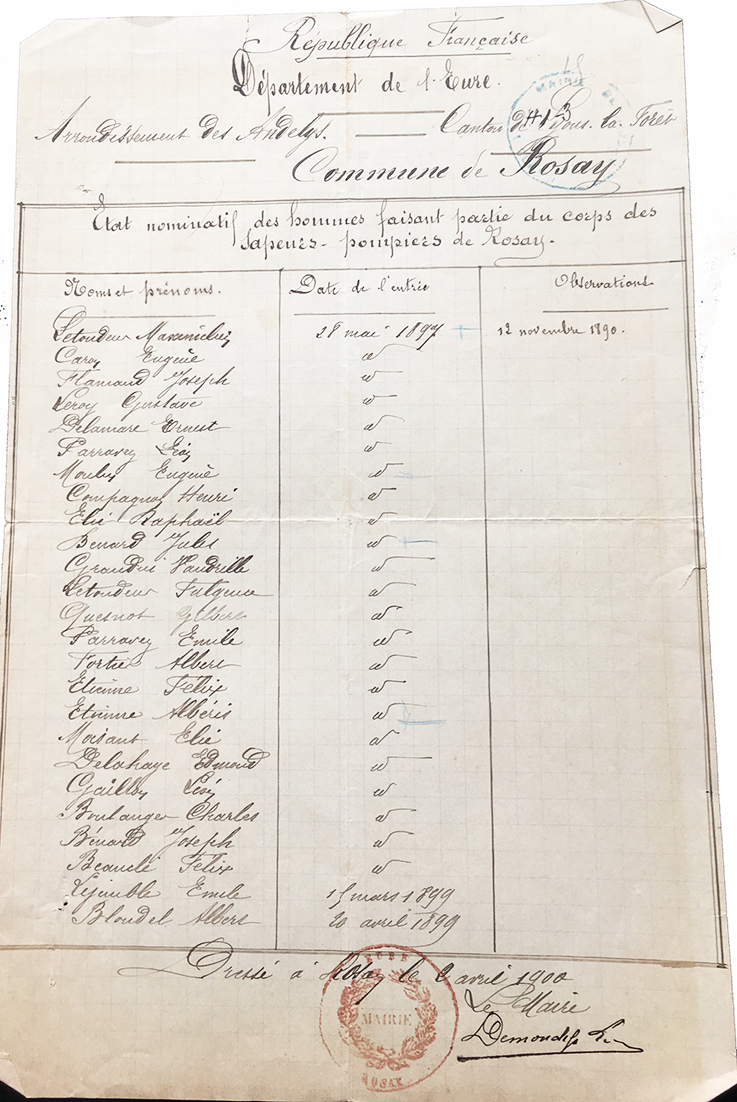 République Française
Département de l'Eure.
Arrondissement des Andelys. Canton de Lyons-la-Forêt
Commune de Rosay
Etat nominatif des hommes faisant partie du corps des
sapeurs-pompiers de Rosay.
Noms et prénoms. Date de l'entrée Observations
Letondeur 28 mai 1897 12 novembre 1890.
Caron Eugène d°
Flamand Joseph d°
Leroy Gustave d°
Delamare Ernest d°
Parravey Léon d°
Moulin Eugène d°
Compagnon Henri d°
Elie Raphaël d°
Benard Jules d°
Grandin Vandrille d°
Letondeur Fulgence d°
Quesnot Gilbert d°
Parravey Emile d°
Fortin Albert d°
Etienne Félix d°
Etienne Albéris d°
Moisant Elie d°
Delahaye Edmond d°
Gaillon Léon d°
Boulanger Charles d°
Bénard Joseph d°
Félix d°
Lejemble Emile 15 mars 1899
Blondel Albert 20 avril 1899
Dressé à Rosay le 2 avril 1900
Le Maire
EURE
MAIRIE
ROSAY